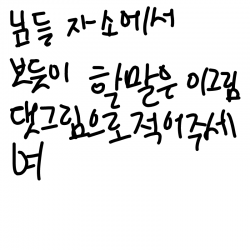 님들 자소에서
보듯이 할말은 이그림
댓그림으로적어주세
여